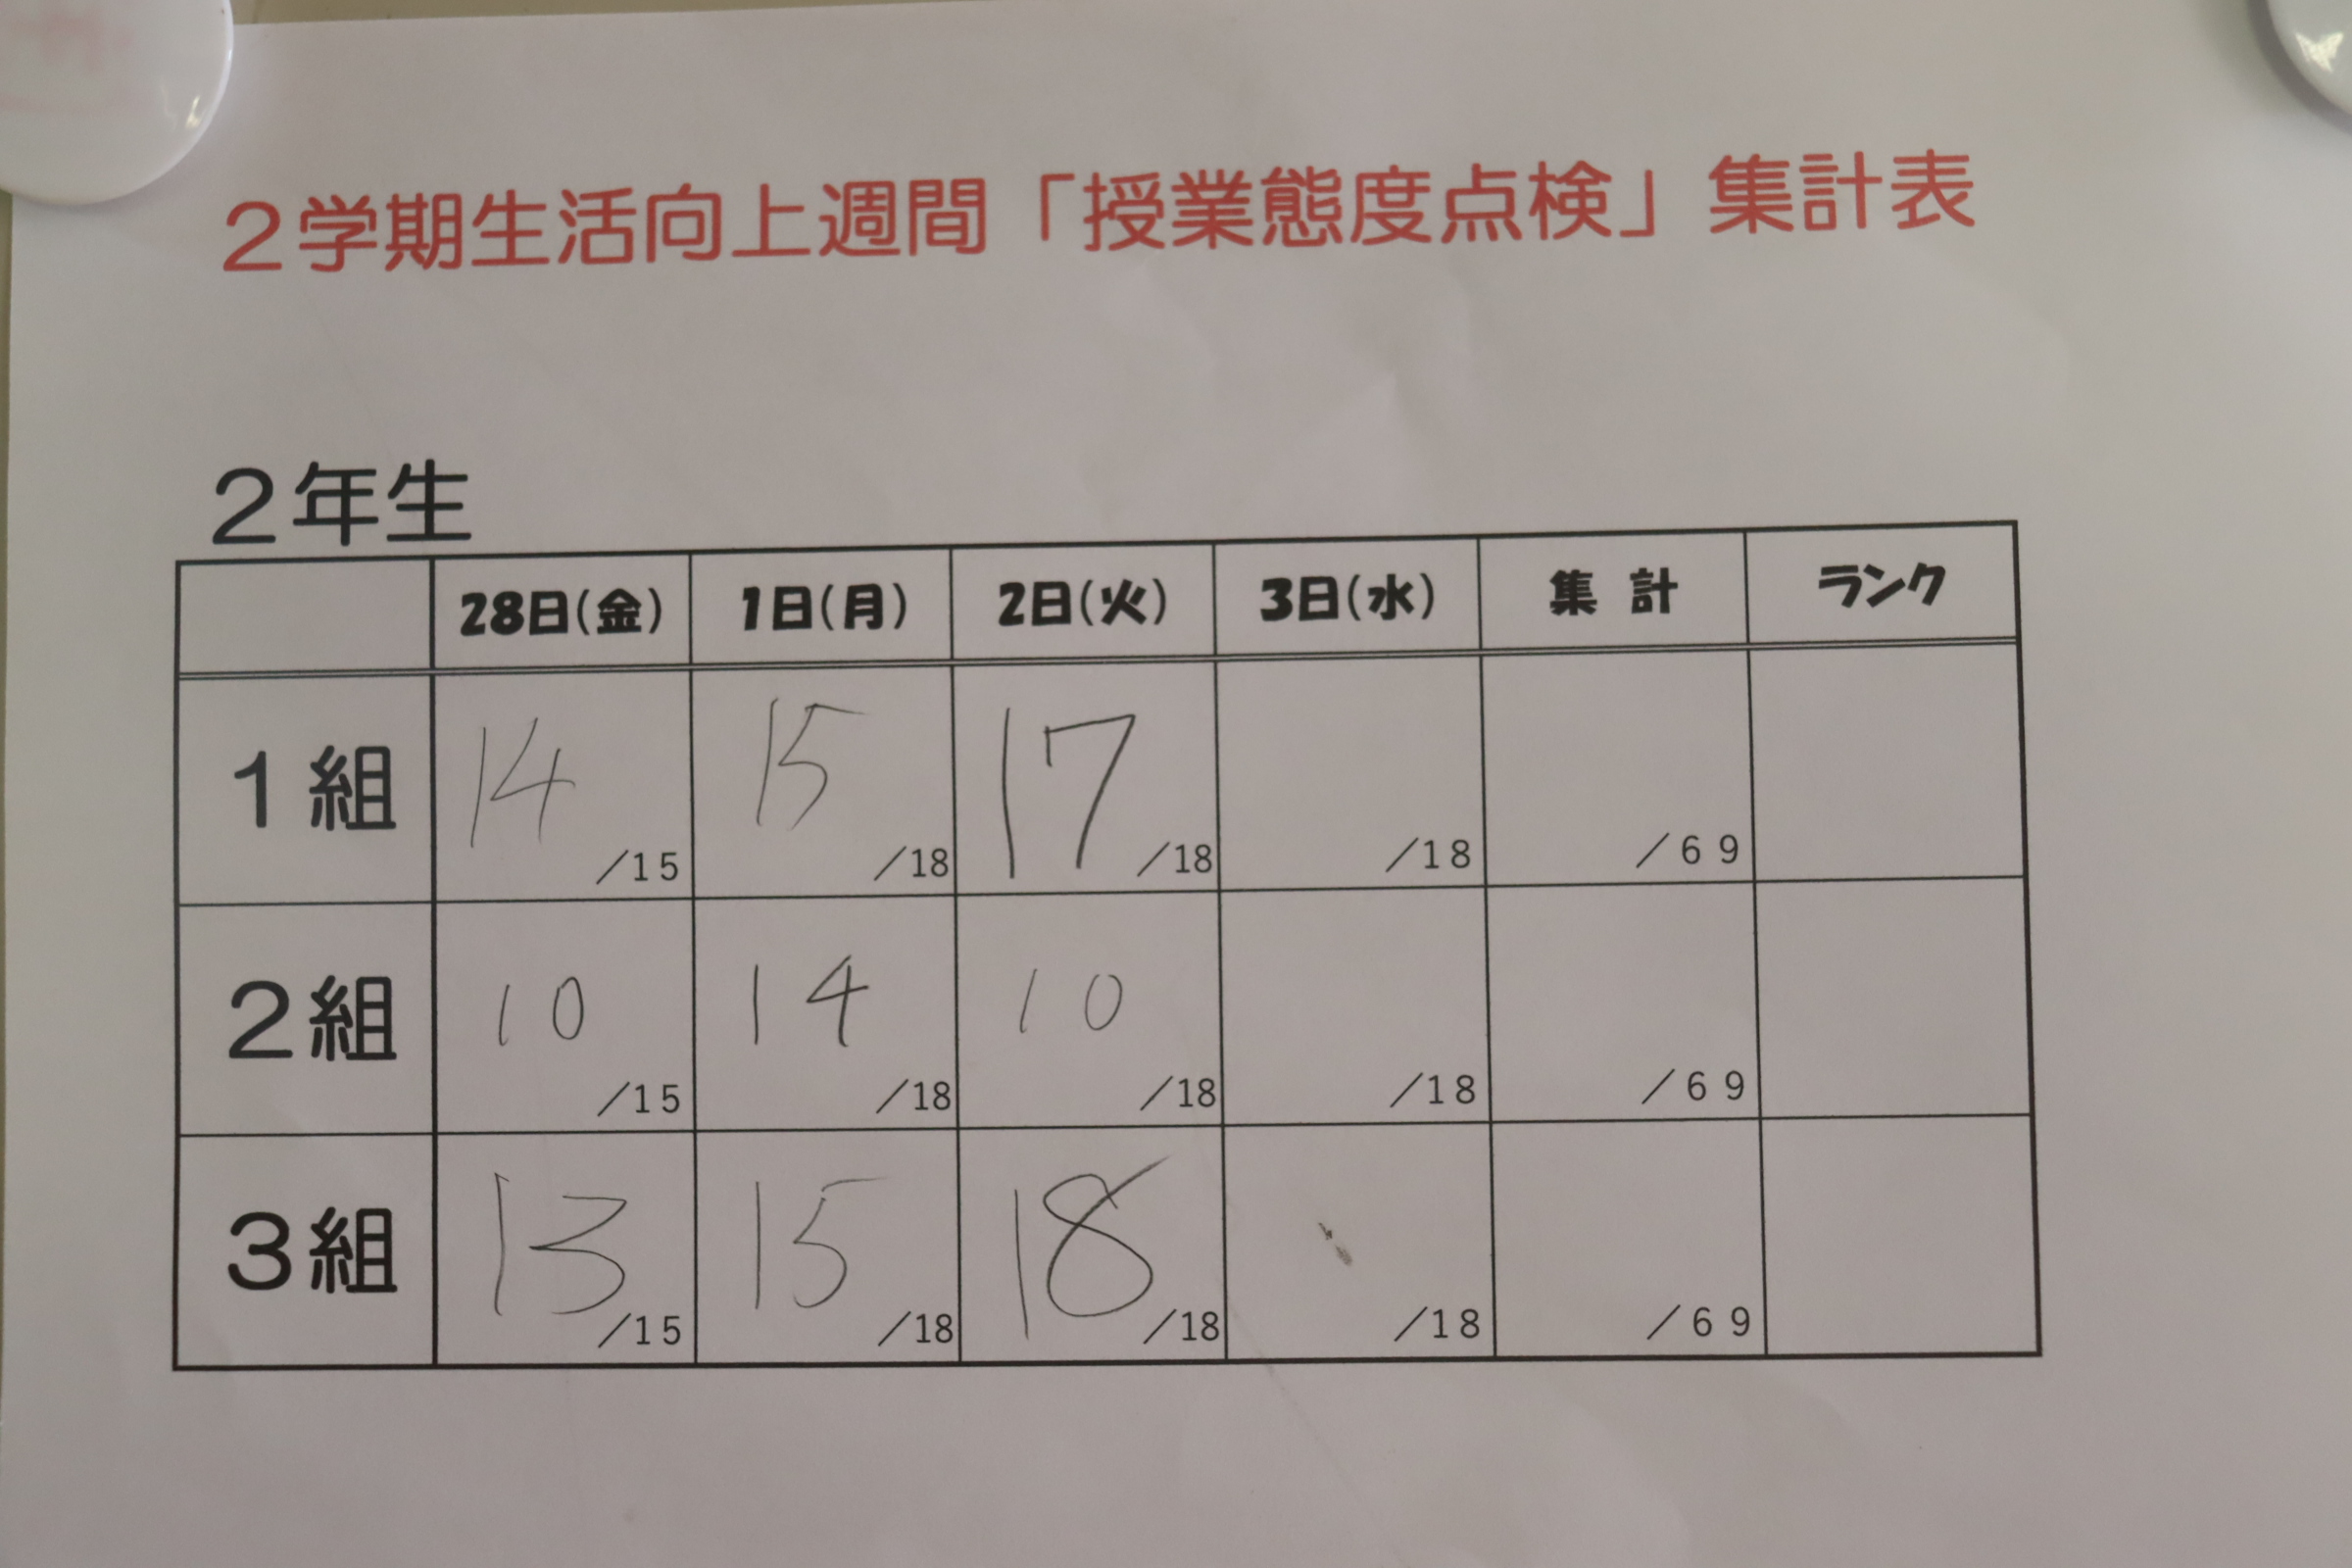 ２学期生活向上週間「授業態度点検」集計表
２年生
28日(金) 1日(月) 2日(火) 3日(水) 集 計 ランク
１組 14 ／15 15 ／18 17 ／18 ／18 ／６９
２組 10 ／15 14 ／18 10 ／18 ／18 ／６９
３組 13 ／15 15 ／18 18 ／18 ／18 ／６９